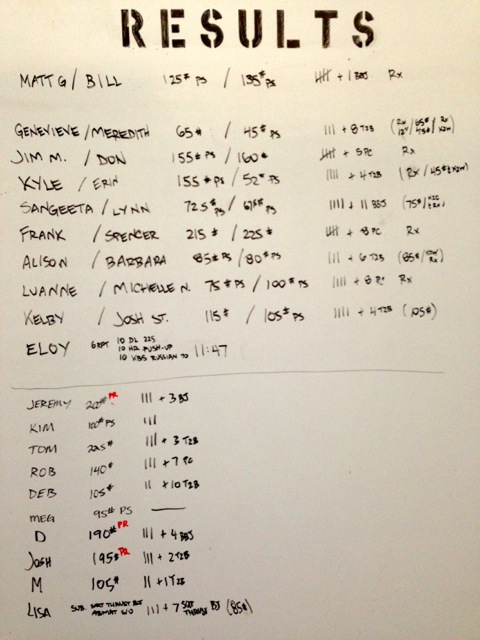 RESULTS
MATT G / BILL 125# PS / 135# PS IIII + 1 BBJ Rx
GENEVIEVE / MEREDITH 65# / 45# PS III + 8 T2B
JIM M. / DON 155# PS / 160# IIII + 5 PC Rx
KYLE / ERIN 155# PS / 52# PS IIII + 4 T2B (Rx / 45#
SANGEETA / LYNN 72.5# PS / PS IIII + 11 BBJ (75#/
FRANK / SPENCER 215# / 225# IIII + 8 PC Rx
ALISON / BARBARA 85# PS / 80# PS III + 6 T2B (85#/ Rx)
LUANNE / MICHELLE N. 75# PS / 100# PS IIII + 8 PC Rx
KELBY / JOSH ST. 115# / 105# PS IIII + 4 T2B (105#)
ELOY 6 RFT 10 DL 225
10 HR PUSH-UP
10 KBS RUSSIAN 70 11:47
JEREMY 200# PR III + 3 BJ
KIM 100# PS III
TOM 225# III + 3 T2B
ROB 140# III + 7 PC
DEB 105# II + 10 T2B
MEG 95# PS —
D 190# PR III + 4 BBJ
JOSH 195# PR III + 2 T2B
M 105# II + 1 T2B
LISA SUB. III + 7 BJ (85#)